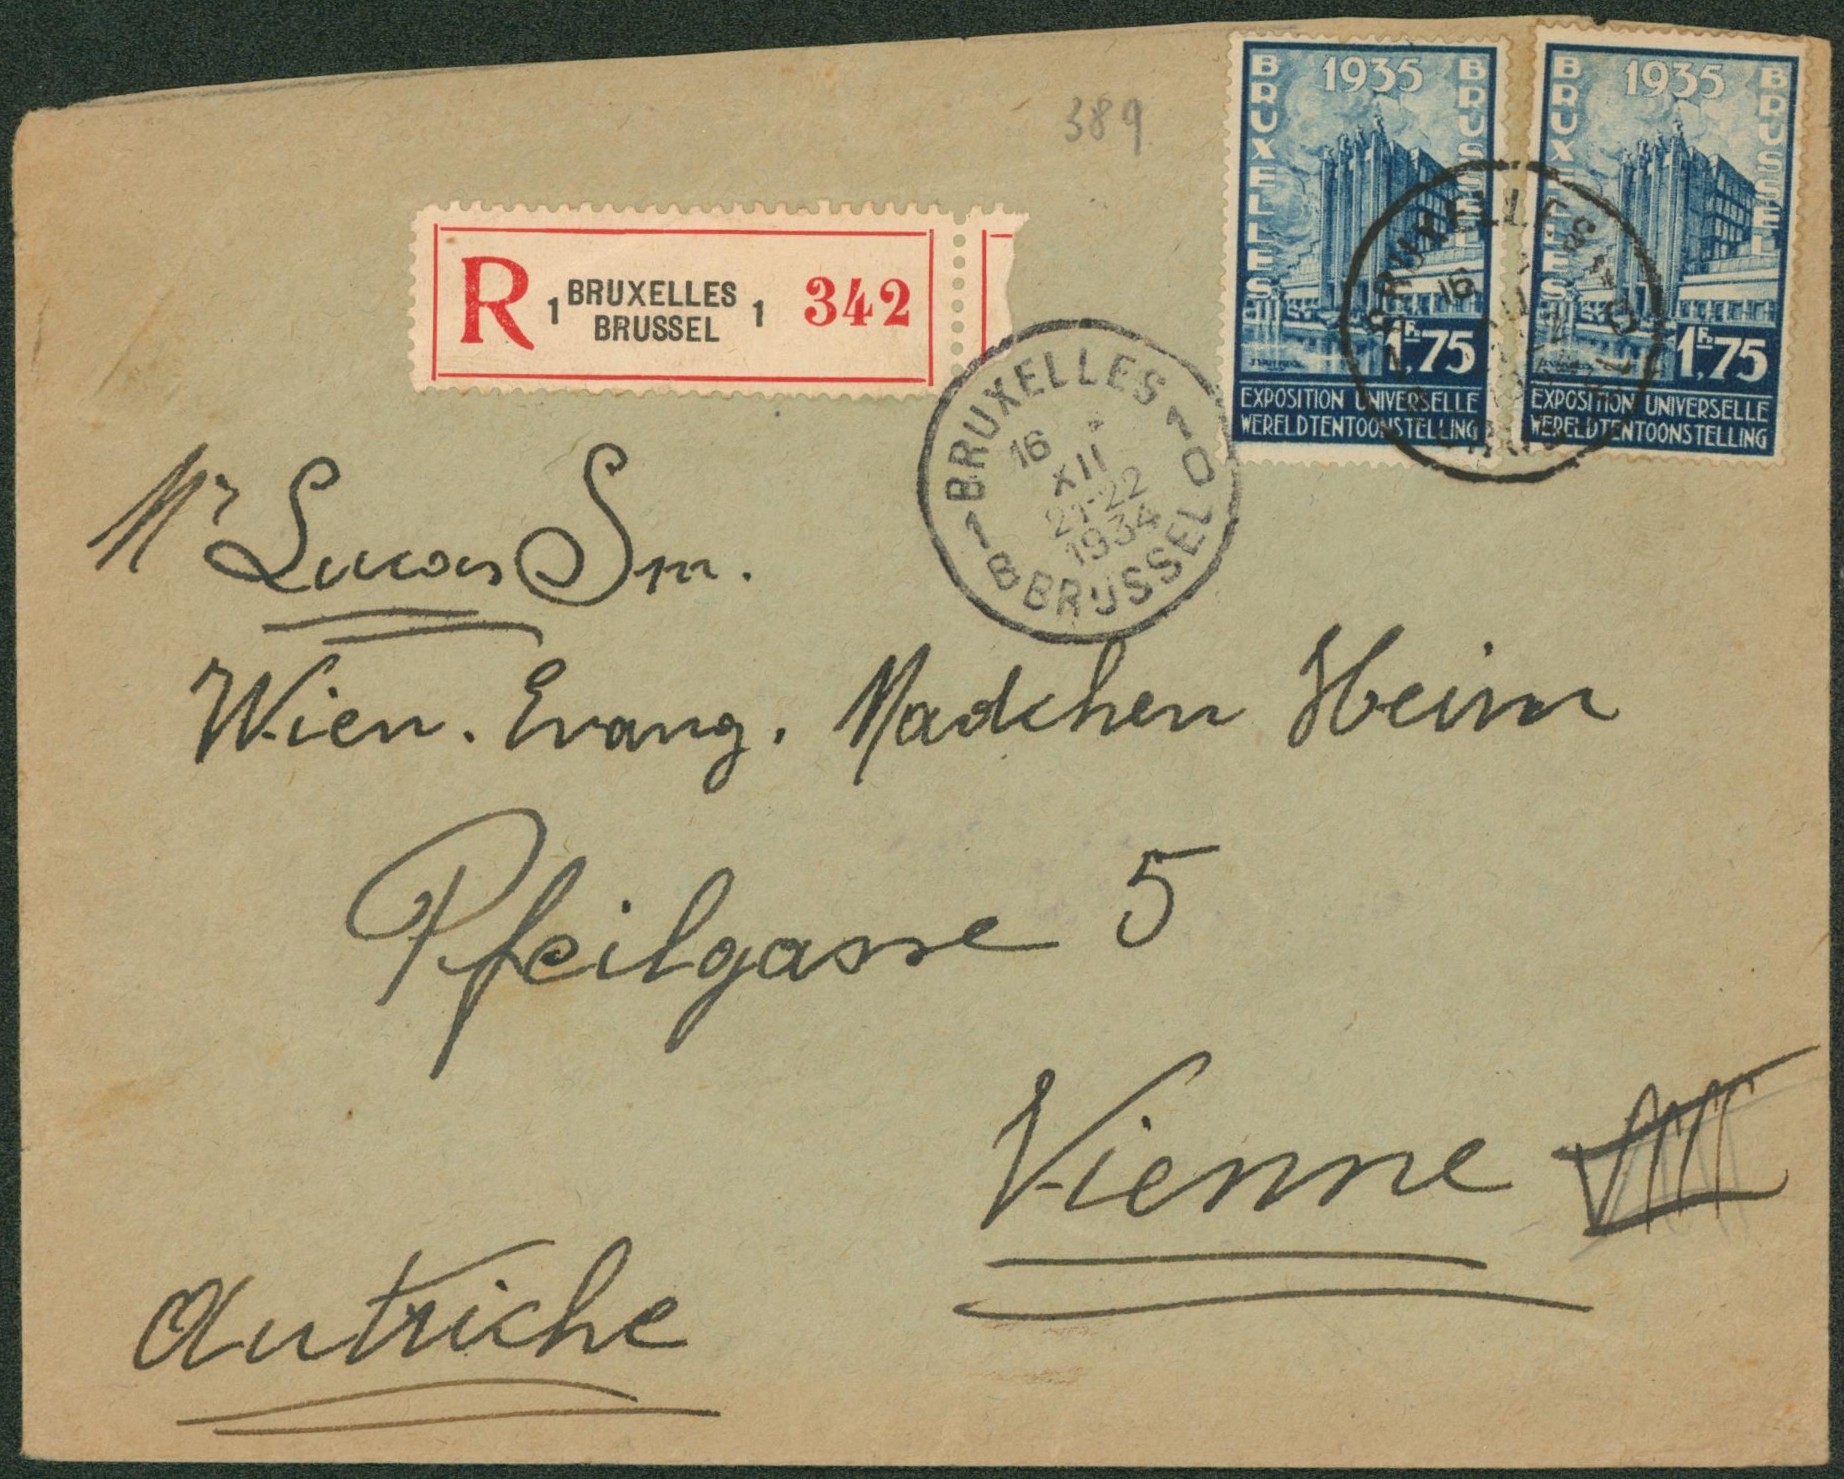 389
1935
BRUXELLES
BRUSSEL
1Fr.75
EXPOSITION UNIVERSELLE
WERELDTENTOONSTELLING
1935
BRUXELLES
BRUSSEL
1Fr.75
EXPOSITION UNIVERSELLE
WERELDTENTOONSTELLING
BRUXELLES
16
R 1 BRUXELLES 1 342
BRUSSEL
BRUXELLES 1D
16
XII
21-22
1934
1B BRUSSEL
Mr Lucas Sm.
Wien. Evang. Madchen Heim
Pfeilgasse 5
Vienne
Autriche